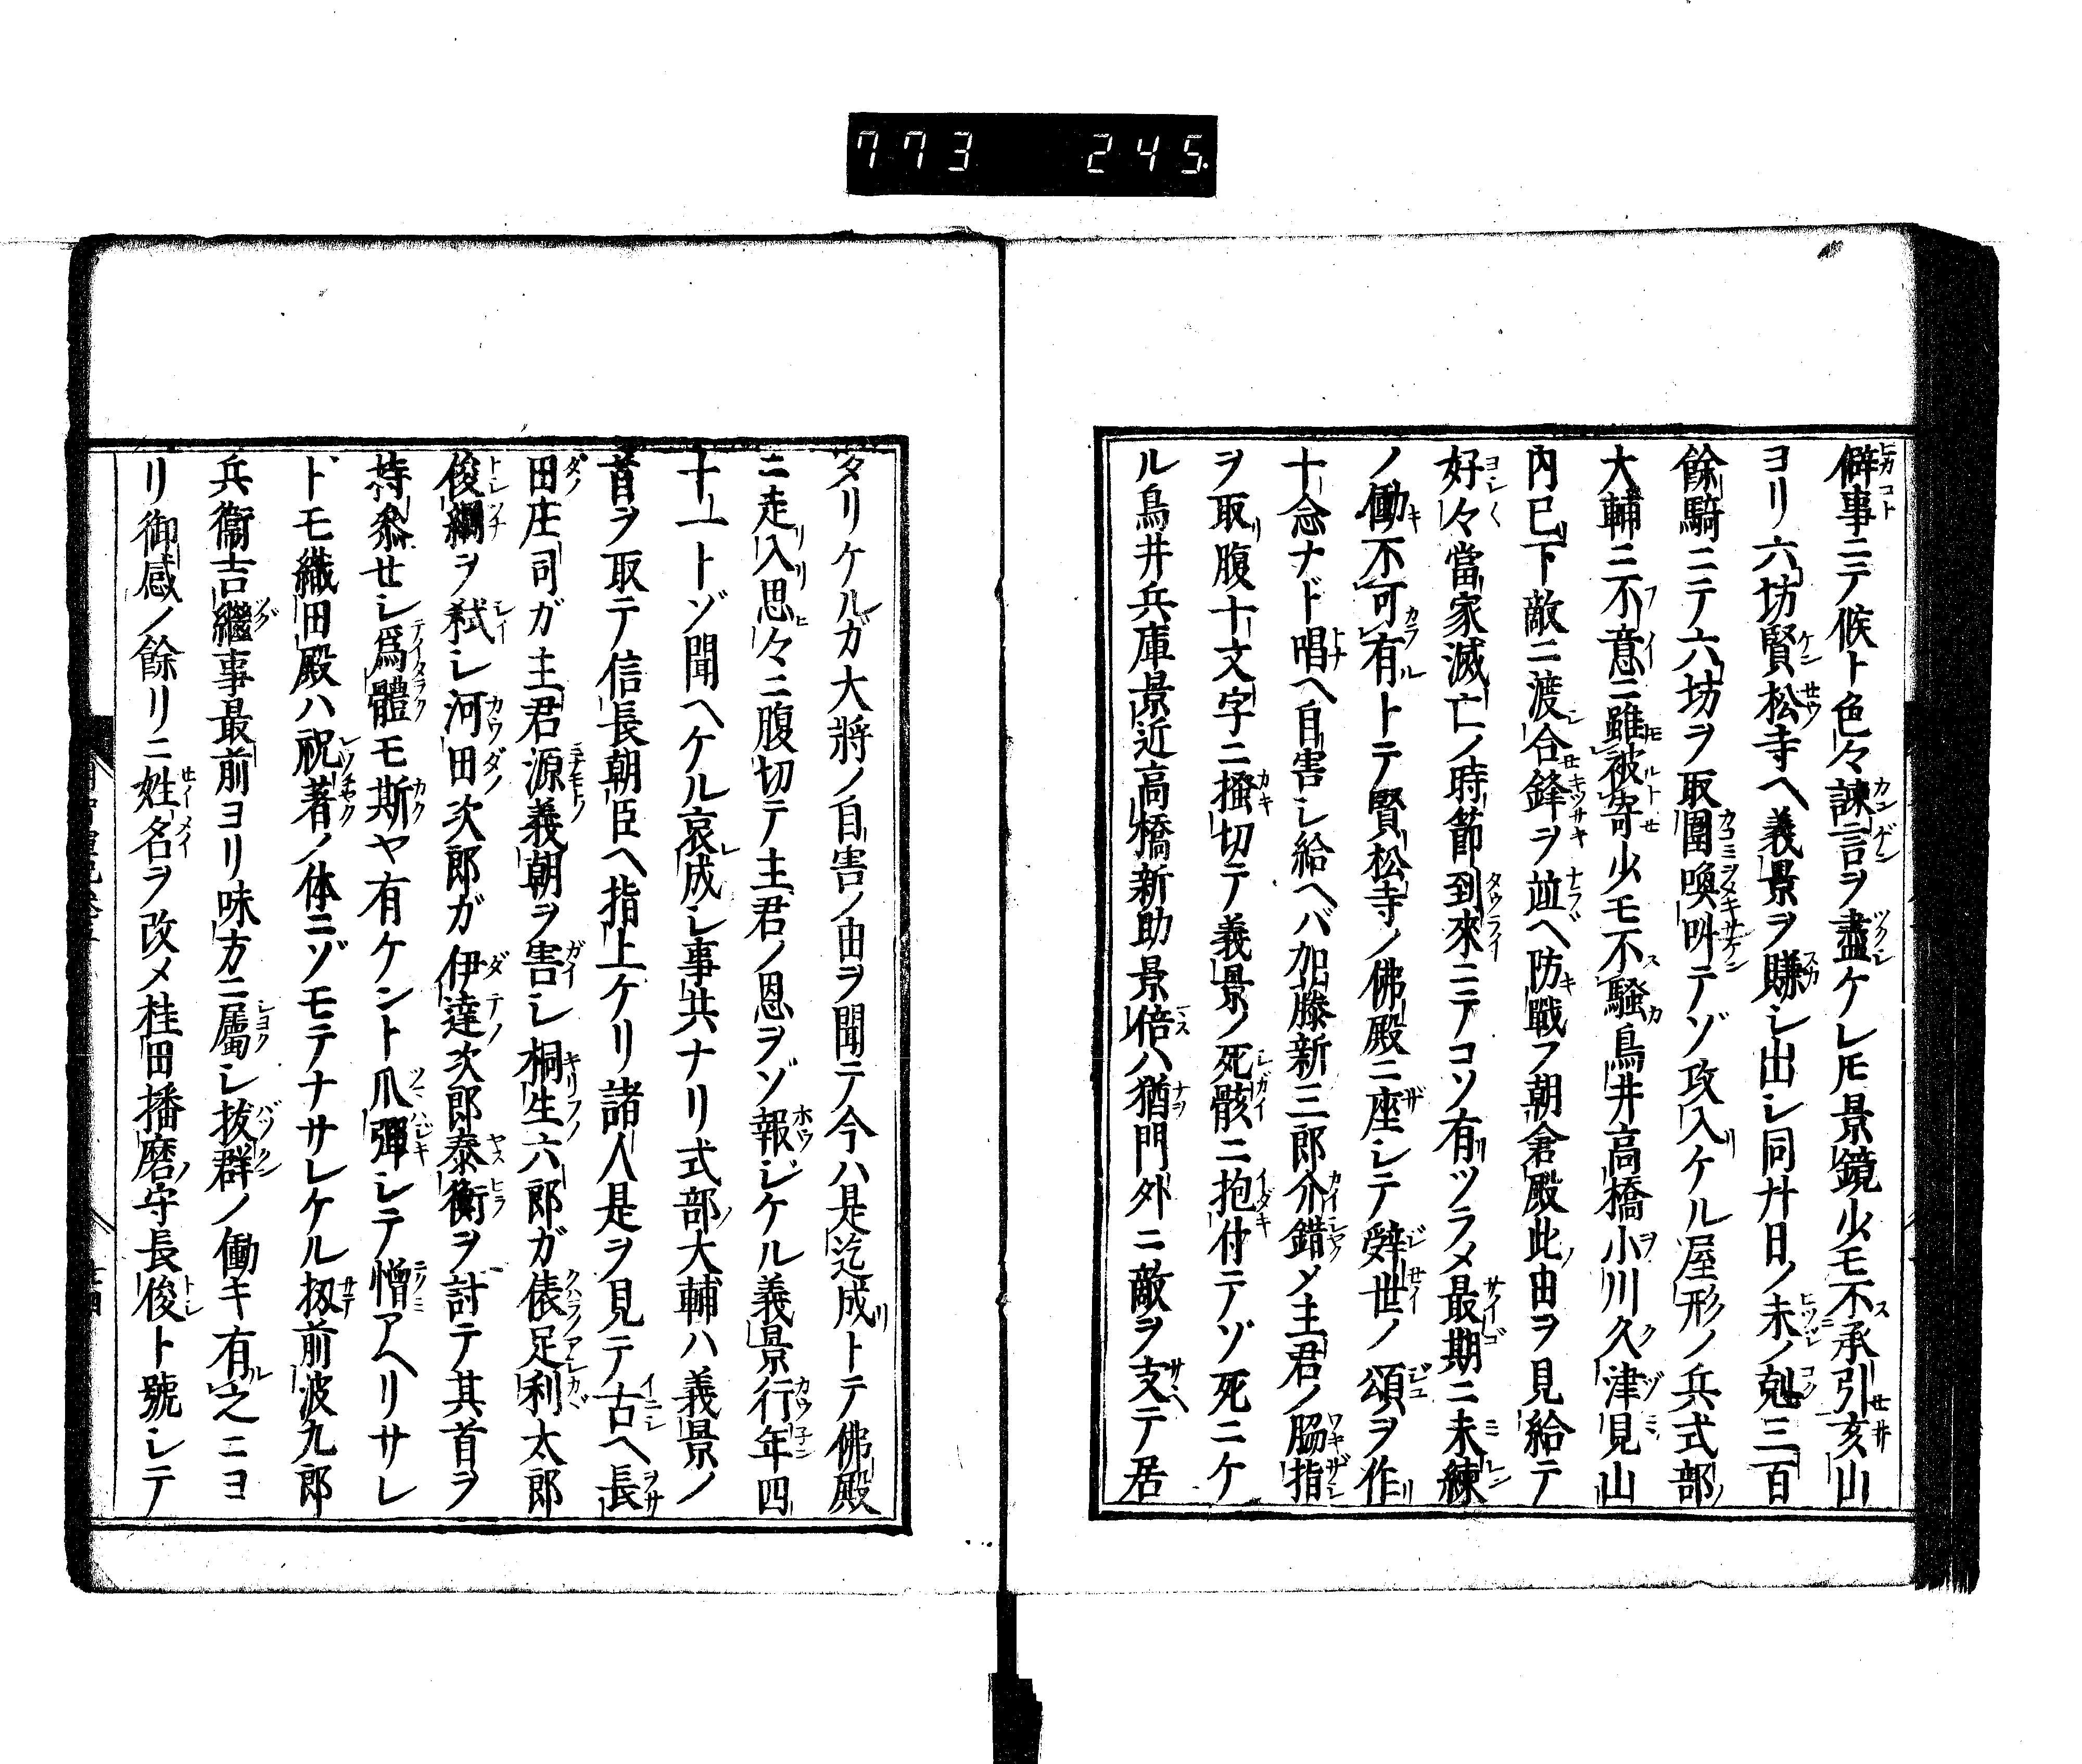 773 245.
僻事ニテ候ト色々諫言ヲ盡ケレ𪜈景鏡少モ不承引亥山
ヨリ六坊賢松寺ヘ義景ヲ賺シ出シ同廿日ノ未ノ剋三百
餘騎ニテ六坊ヲ取圍喚叫テゾ攻入ケル屋形ノ兵式部
大輔ニ不意ニ雖被寄少モ不騒鳥井高橋小川久津見山
内已下敵ニ渡合鋒ヲ並ベ防戰フ朝倉殿此由ヲ見給テ
好々當家滅亡ノ時節到來ニテコソ有ツラメ最期ニ未練
ノ働不可有トテ賢松寺ノ佛殿ニ座シテ辭世ノ頌ヲ作
十念ナド唱ヘ自害シ給ヘバ加藤新三郎介錯メ主君ノ脇指
ヲ取腹十文字ニ搔切テ義景ノ死骸ニ抱付テゾ死ニケ
ル鳥井兵庫景近高橋新助景倍ハ猶門外ニ敵ヲ支テ居
タリケルガ大將ノ自害ノ由ヲ聞テ今ハ是迄成トテ佛殿
ニ走入思々ニ腹切テ主君ノ恩ヲゾ報ジケル義景行年四
十一トゾ聞ヘケル哀成シ事共ナリ式部大輔ハ義景ノ
首ヲ取テ信長朝臣ヘ指上ケリ諸人是ヲ見テ古ヘ長
田庄司ガ主君源義朝ヲ害シ桐生六郎ガ俵足利太郎
俊綱ヲ弑シ河田次郎ガ伊達次郎泰衡ヲ討テ其首ヲ
持參セシ爲體モ斯ヤ有ケント爪彈シテ憎アヘリサレ
ドモ織田殿ハ祝著ノ体ニゾモテナサレケル扨前波九郎
兵衞吉繼事最前ヨリ味方ニ屬シ拔群ノ働キ有之ニヨ
リ御感ノ餘リニ姓名ヲ改メ桂田播磨守長俊ト號シテ